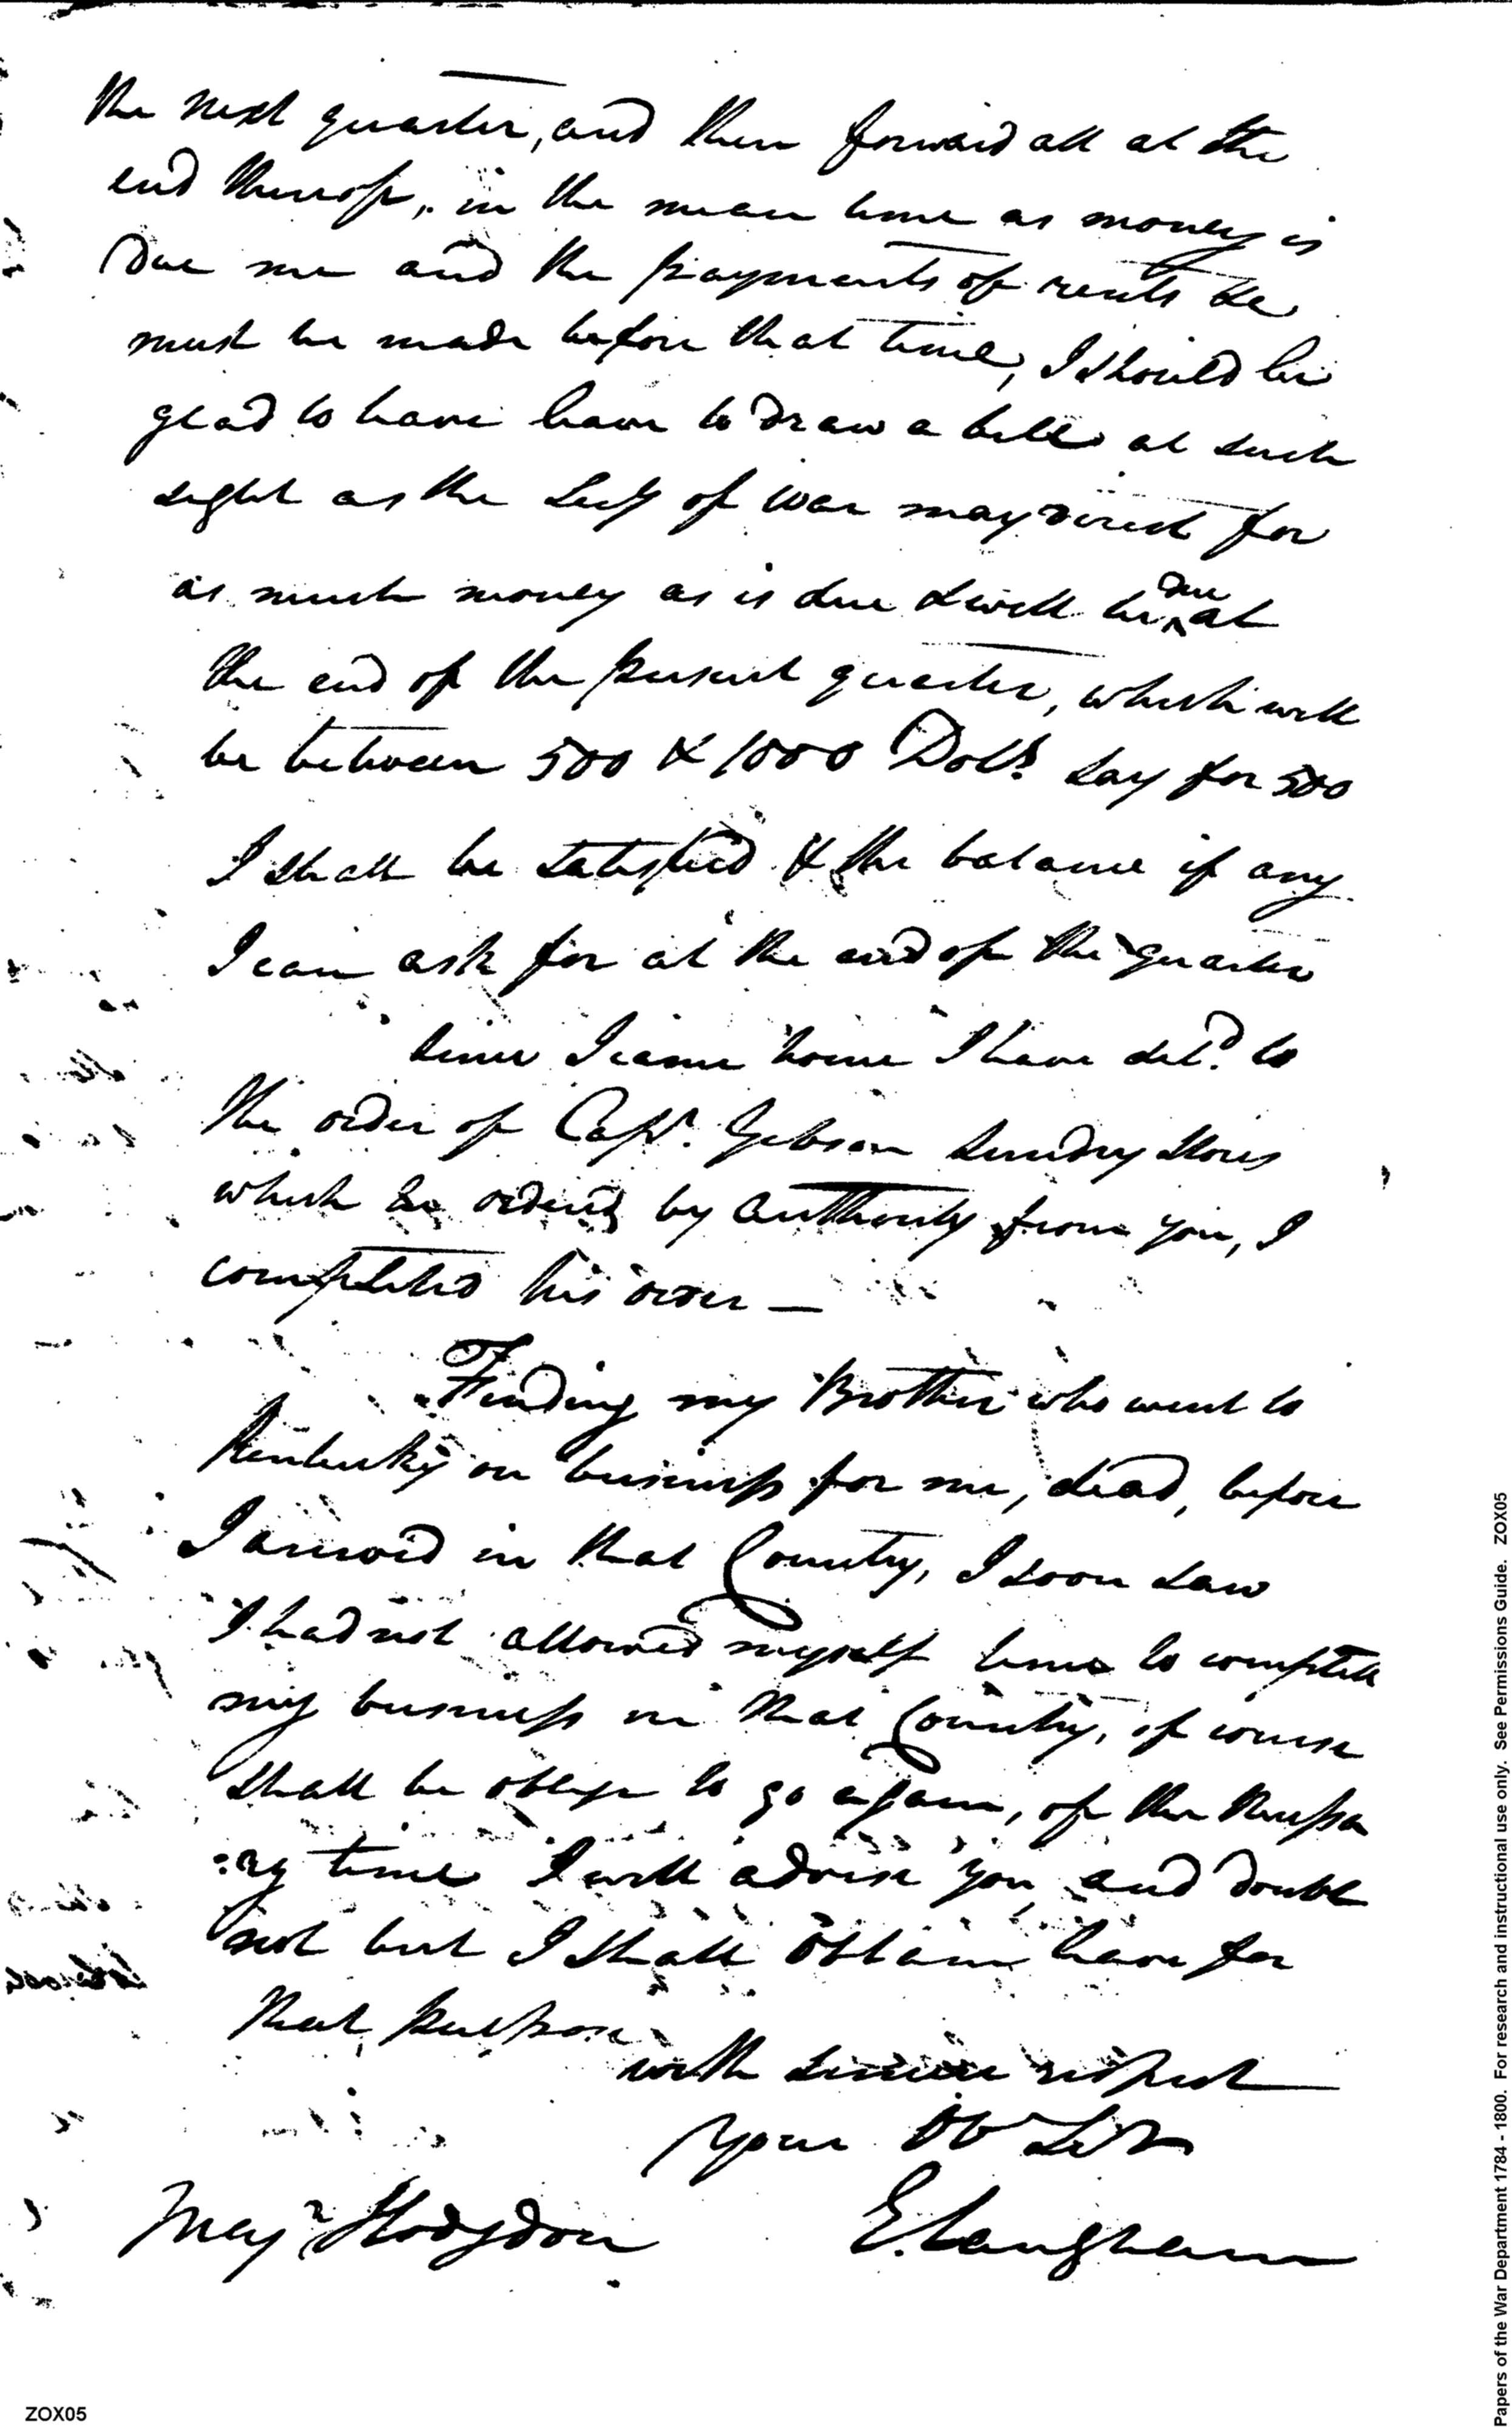 the next quarter, and then forward all at the
end thereof, in the mean time as money is
Due me and the payments of rents &c
must be made before that time, I should be
glad to have leave to Draw a bill at such
sight as the Secy of War may direct for
as much money as is due & will be due at
the end of the present quarter, which will
be between 500 & 1000 Dolls. say for 500
I shall be satisfied & the balance if any
I can ask for at the end of the quarter
since I came home I have deld. to
the order of Capt. Gibson sundry Stores
which he ordered by authority from you, I
completed his order —
Finding my Brother who went to
Kentucky on business for me, dead, before
I arrived in that Country, I soon saw
I had not allowed myself time to complete
my business in that Country, of course
shall be oblige to go again, of the Necessa
:ry time I will advise you, and doubt
not but I shall obtain leave for
that purpose
with sincere respect
your Ob Sert
Majr. Hodgdon E. Langham
ZOX05
Papers of the War Department 1784 - 1800. For research and instructional use only. See Permissions Guide. ZOX05